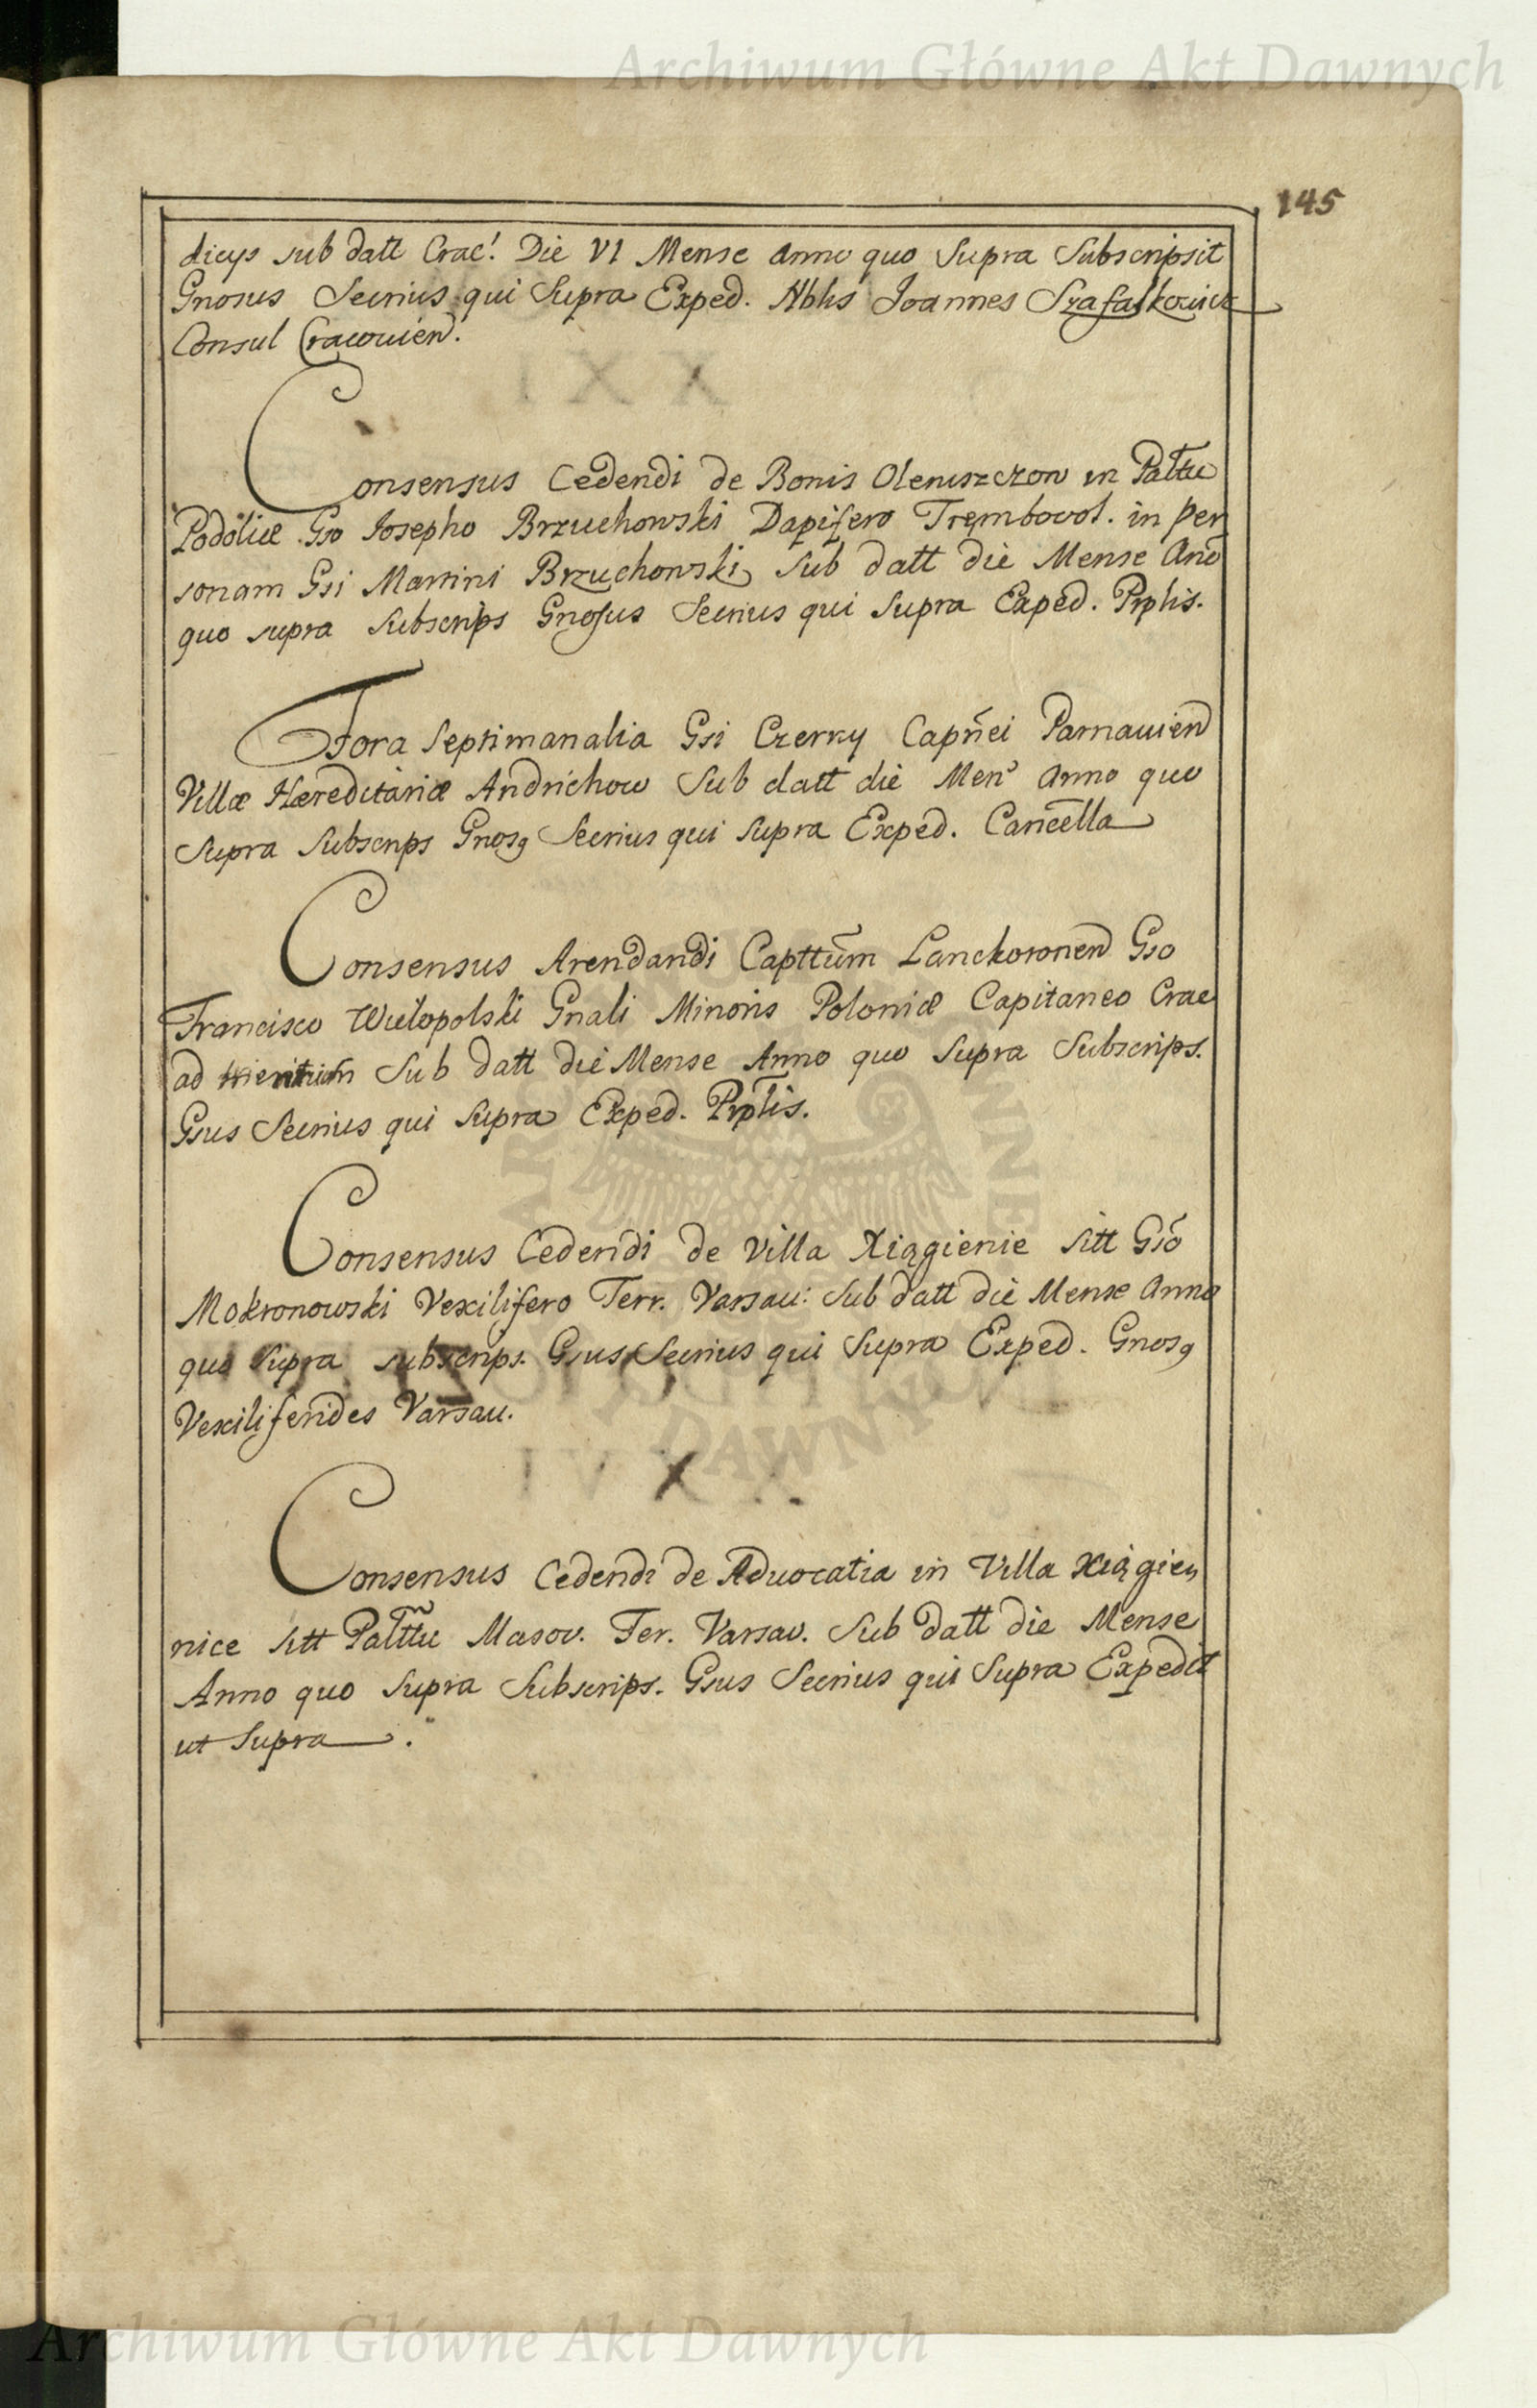 Archiwum Główne Akt Dawnych
145
dicys sub datt Crac! Die VI Mense Anno quo Supra Subscripsit
Gnosus Secrius qui Supra Exped. Nblis Joannes Szafalkowicz
Consul Cracovien.
I X X
Consensus Cedendi de Bonis Oleniszczow in Palttu
Podoliæ Gso Iosepho Brzuchowski Dapifero Trembovol. in per
sonam Gsi Martini Brzuchowski, Sub datt die Mense Anō
quo supra Subscrips Gnosus Secrius qui Supra Exped. Prplis.
Fora Septimanalia Gsi Czerny Capñei Parnavien
Villæ Hæreditariæ Andrichow Sub datt die Men' Anno quo
Supra Subscrips Gnosq Secrius qui Supra Exped. Cancēlla
Consensus Arendandi Capttūm Lanckoronen Gso
Francisco Wielopolski Gnali Minoris Poloniæ Capitaneo Crac
ad Sub datt die Mense Anno quo Supra Subscrips.
Gsus Secrius qui Supra Exped. Prptis.
Consensus Cedendi de Villa Xiągienie sitt Gsō
Mokronowski Vexilifero Terr. Varsav: Sub datt die Mense Anno
quo Supra subscrips. Gsus Secrius qui Supra Exped. Gnosq
Vexiliferides Varsav.
I V X X
Consensus Cedendi de Advocatia in Villa Xiągien
nice sitt Palttu Masov. Ter. Varsav. Sub datt die Mense
Anno quo Supra Subscrips. Gsus Secrius qui Supra Expedit
ut Supra.
Archiwum Główne Akt Dawnych